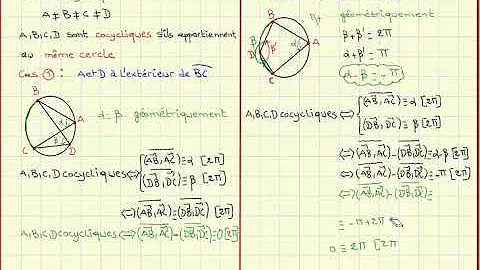 A ≠ B ≠ C ≠ D
A, B, C, D sont cocycliques s'ils appartiennent
au même cercle
Cas ①: A et D à l'extérieur de BC
B
α
A
β
C
D
α = β géométriquement
A, B, C, D cocycliques ⇔ { (AB, AC) ≡ α [2π]
(DB, DC) ≡ β [2π]
⇔ (AB, AC) ≡ (DB, DC) [2π]
A, B, C, D cocycliques ⇔ (AB, AC) - (DB, DC) ≡ 0 [2π]
géométriquement
B
β + β' = 2π
D
β'
α
A
α + β' = π
C
α - β = -π
A, B, C, D cocycliques ⇔ { (AB, AC) ≡ α [2π]
(DB, DC) ≡ β [2π]
⇔ (AB, AC) - (DB, DC) ≡ α - β [2π]
⇔ (AB, AC) - (DB, DC) ≡ -π [2π]
⇔ (AB, AC) - (DB, DC) ≡
≡ -π + 2π
0 ≡ 2π [2π